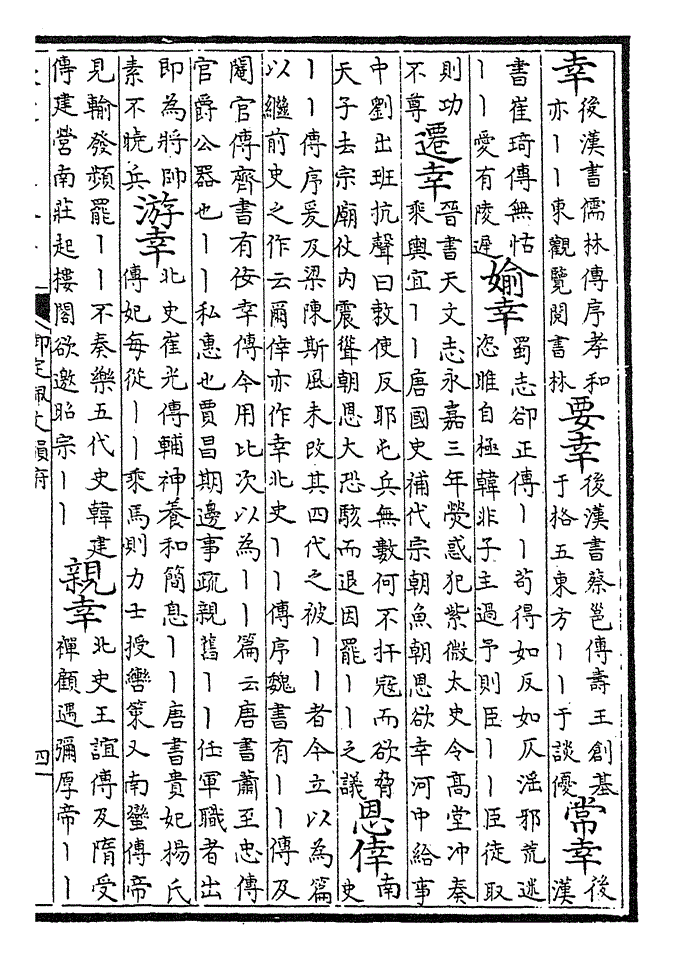 幸
後漢書儒林傳序孝和
亦丨丨東觀覽閱書林
要幸
後漢書蔡邕傳壽王創基
于格五東方丨丨于談優
常幸
後
漢
書崔琦傳無怙
丨丨愛有陵遲
婾幸
蜀志郤正傳丨丨苟得如反如仄淫邪荒迷
恣睢自極韓非子主過予則臣丨丨臣徒取
則功
不尊
遷幸
晉書天文志永嘉三年熒惑犯紫微太史令高堂冲奏
乘輿宜丨丨唐國史補代宗朝魚朝恩欲幸河中給事
中劉出班抗聲曰敕使反耶屯兵無數何不扞寇而欲脅
天子去宗廟仗內震聳朝恩大恐駭而退因罷丨丨之議
恩倖
南
史
丨丨傳序爰及梁陳斯風未改其四代之被丨丨者今立以為篇
以繼前史之作云爾倖亦作幸北史丨丨傳序魏書有丨丨傳及
閹官傳齊書有佞幸傳今用比次以為丨丨篇云唐書蕭至忠傳
官爵公器也丨丨私惠也賈昌期邊事疏親舊丨丨任軍職者出
即為將帥
素不曉兵
游幸
北史崔光傳輔神養和簡息丨丨唐書貴妃楊氏
傳妃每從丨丨乘馬則力士授轡策又南蠻傳帝
見輸發頻罷丨丨不奏樂五代史韓建
傳建營南莊起樓閣欲邀昭宗丨丨
親幸
北史王誼傳及隋受
禪顧遇彌厚帝丨丨
御定佩文韻府
四